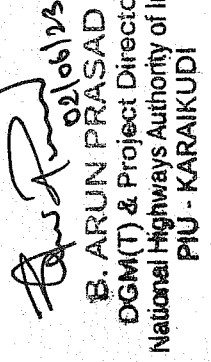 02/06/23
B. ARUN PRASAD
DGM(T) & Project Directo
National Highways Authority of In
PIU - KARAIKUDI